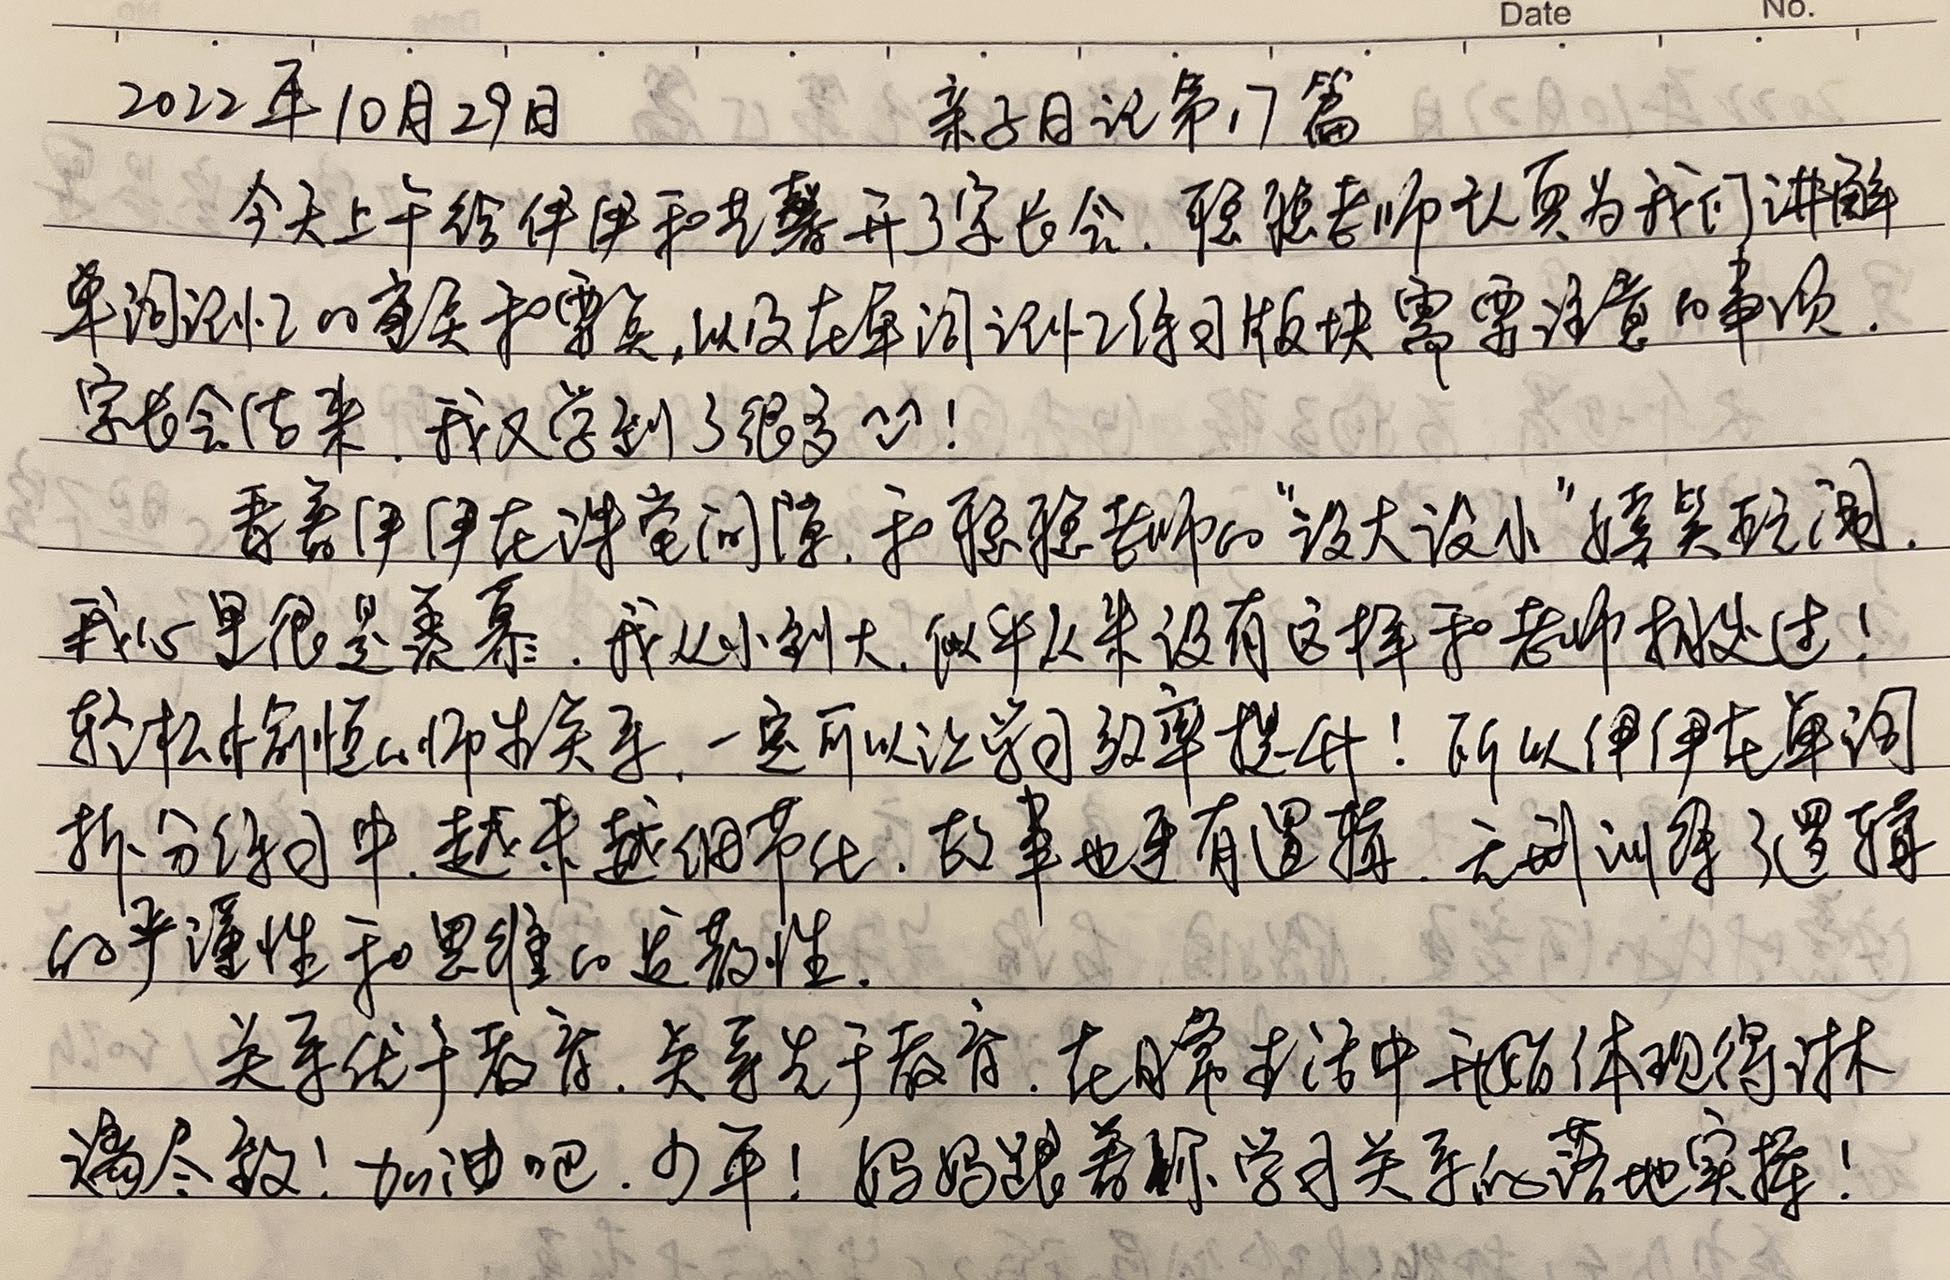 Date No.
2022年10月29日 亲子日记第17篇
今天上午给伊伊和艺馨开了家长会，聪聪老师认真为我们讲解
单词记忆的意义和要点，以及在单词记忆练习版块需要注意的事项。
家长会结束，我又学到了很多！
看着伊伊在课堂间隙，和聪聪老师的“没大没小”嬉笑玩闹，
我心里很是羡慕，我从小到大，似乎从来没有这样和老师相处过！
轻松愉悦的师生关系，一定可以让学习效率提升！所以伊伊在单词
拆分练习中，越来越细节化，故事也更有逻辑，无形训练了逻辑
的严谨性和思维的发散性。
关系优于教育，关系先于教育，在日常生活中开始体现得淋
漓尽致！加油吧，少年！妈妈跟着你学习关系的落地实操！